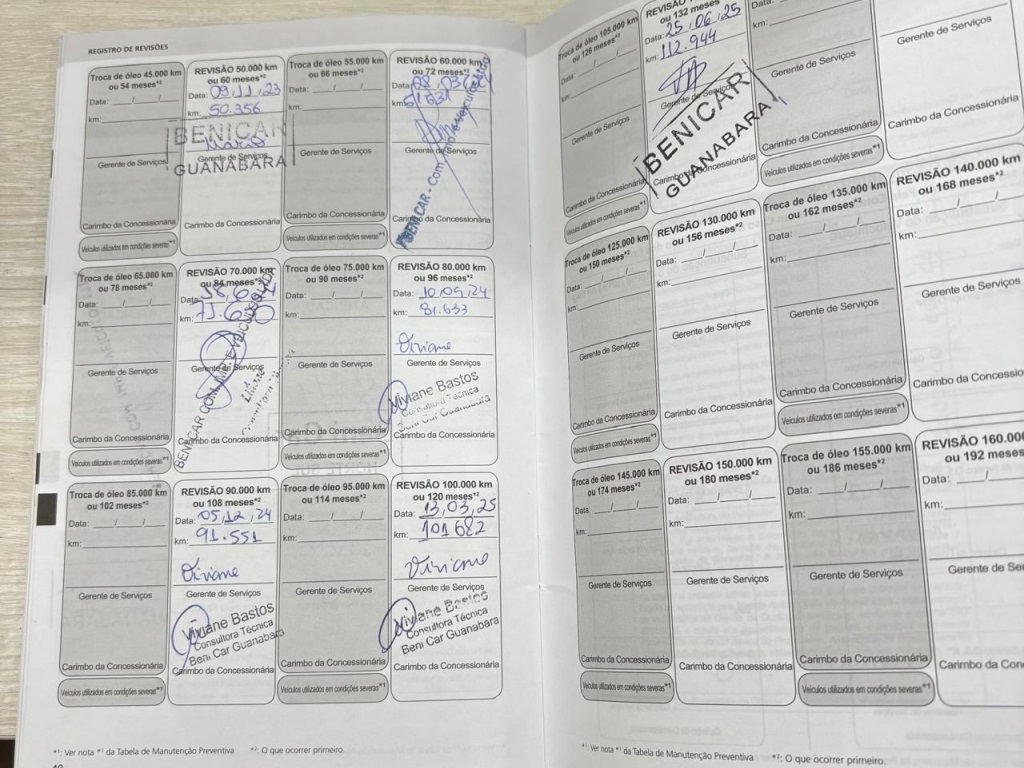 REGISTRO DE REVISÕES
Troca de óleo 45.000 km
ou 54 meses*¹
Data: __/__/__
km:
Gerente de Serviços
Carimbo da Concessionária
Veículos utilizados em condições severas*¹
REVISÃO 50.000 km
ou 60 meses*²
Data: 09,11,23
km: 50.356
BENICAR
Gerente de Serviços
GUANABARA
Carimbo da Concessionária
Troca de óleo 55.000 km
ou 66 meses*¹
Data: __/__/__
km:
Gerente de Serviços
Carimbo da Concessionária
Veículos utilizados em condições severas*¹
REVISÃO 60.000 km
ou 72 meses*²
Data:
km:
Gerente de Serviços
BENICAR - Com
Carimbo da Concessionária
Troca de óleo 65.000 km
ou 78 meses*¹
Data: __/__/__
km:
Gerente de Serviços
Carimbo da Concessionária
Veículos utilizados em condições severas*¹
REVISÃO 70.000 km
ou 84 meses*²
Data:
km:
Gerente de Serviços
BENICAR COM
Carimbo da Concessionária
Troca de óleo 75.000 km
ou 90 meses*¹
Data: __/__/__
km:
Gerente de Serviços
Carimbo da Concessionária
Veículos utilizados em condições severas*¹
REVISÃO 80.000 km
ou 96 meses*²
Data: 10,09,24
km: 81.633
Viviane
Gerente de Serviços
Viviane Bastos
Consultora Técnica
Beni Car Guanabara
Carimbo da Concessionária
Troca de óleo 85.000 km
ou 102 meses*¹
Data: __/__/__
km:
Gerente de Serviços
Carimbo da Concessionária
Veículos utilizados em condições severas*¹
REVISÃO 90.000 km
ou 108 meses*²
Data: 05,12,24
km: 91.551
Viviane
Gerente de Serviços
Viviane Bastos
Consultora Técnica
Beni Car Guanabara
Carimbo da Concessionária
Troca de óleo 95.000 km
ou 114 meses*²
Data: __/__/__
km:
Gerente de Serviços
Carimbo da Concessionária
Veículos utilizados em condições severas*¹
REVISÃO 100.000 km
ou 120 meses*²
Data: 13,03,25
km: 101682
Viviane
Gerente de Serviços
Viviane Bastos
Consultora Técnica
Beni Car Guanabara
Carimbo da Concessionária
*¹: Ver nota *¹ da Tabela de Manutenção Preventiva *²: O que ocorrer primeiro.
Troca de óleo 105.000 km
ou 126 meses*²
Data: __/__/__
km:
Gerente de Serviços
Carimbo da Concessionária
Veículos utilizados em condições severas*¹
REVISÃO
ou 132 meses
Data: 25,06,25
km: 112.944
Gerente de Serviços
BENICAR
GUANABARA
Carimbo da Concessionária
Data:
km:
Gerente de Serviços
Carimbo da Concessionária
Veículos utilizados em condições severas*¹
km:
Gerente de Serviços
Carimbo da Concessionária
Troca de óleo 125.000 km
ou 150 meses*²
Data: __/__/__
km:
Gerente de Serviços
Carimbo da Concessionária
Veículos utilizados em condições severas*¹
REVISÃO 130.000 km
ou 156 meses*²
Data: __/__/__
km:
Gerente de Serviços
Carimbo da Concessionária
Troca de óleo 135.000 km
ou 162 meses*²
Data: __/__/__
km:
Gerente de Serviços
Carimbo da Concessionária
Veículos utilizados em condições severas*¹
REVISÃO 140.000 km
ou 168 meses*²
Data: __/__/__
km:
Gerente de Serviços
Carimbo da Concessio
Troca de óleo 145.000 km
ou 174 meses*²
Data: __/__/__
km:
Gerente de Serviços
Carimbo da Concessionária
Veículos utilizados em condições severas*¹
REVISÃO 150.000 km
ou 180 meses*²
Data: __/__/__
km:
Gerente de Serviços
Carimbo da Concessionária
Troca de óleo 155.000 km
ou 186 meses*²
Data: __/__/__
km:
Gerente de Serviços
Carimbo da Concessionária
Veículos utilizados em condições severas*¹
REVISÃO 160.00
ou 192 meses
Data: __/__
km:
Gerente de Se
Carimbo da Con
*¹: Ver nota *¹ da Tabela de Manutenção Preventiva *²: O que ocorrer primeiro.